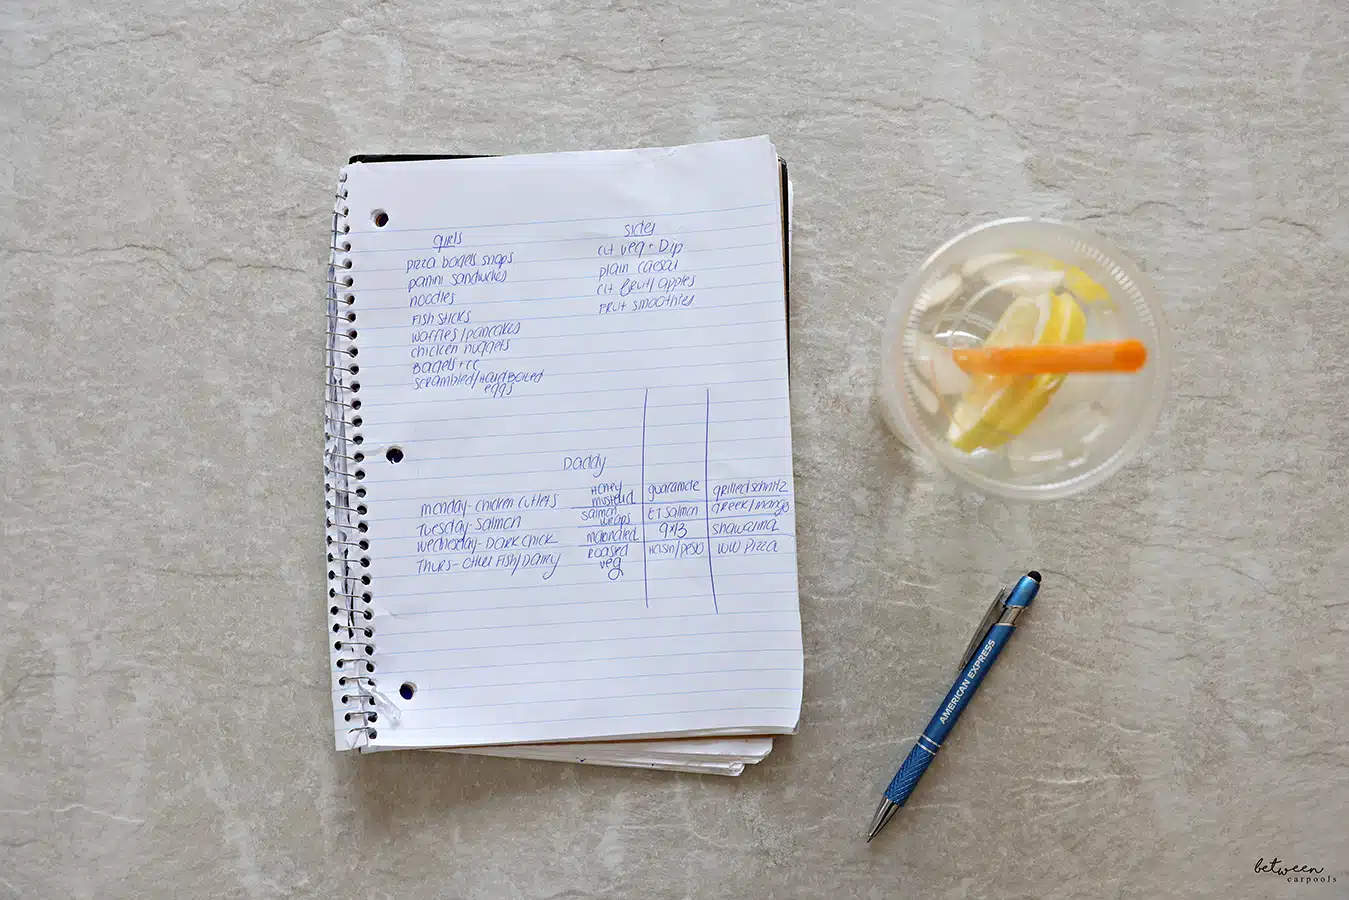 girls
pizza bagels snaps
panini sandwiches
noodles
Fish sticks
waffles/pancakes
chicken nuggets
Bagels + cc
scrambled/Hard Boiled
eggs
sides
cut veg + Dip
plain caesar
cut fruit/apples
fruit smoothies
Daddy
monday - chicken cutlets
Honey mustard
guacamole
grilled schnitz
Tuesday - Salmon
salmon wraps
salmon
Greek/mango
Wednesday - Dark chick
marinated
9x13
shawarma
Thurs - other Fish/Dairey
roasted veg
/pesto
WW Pizza
AMERICAN EXPRESS
between
carpools